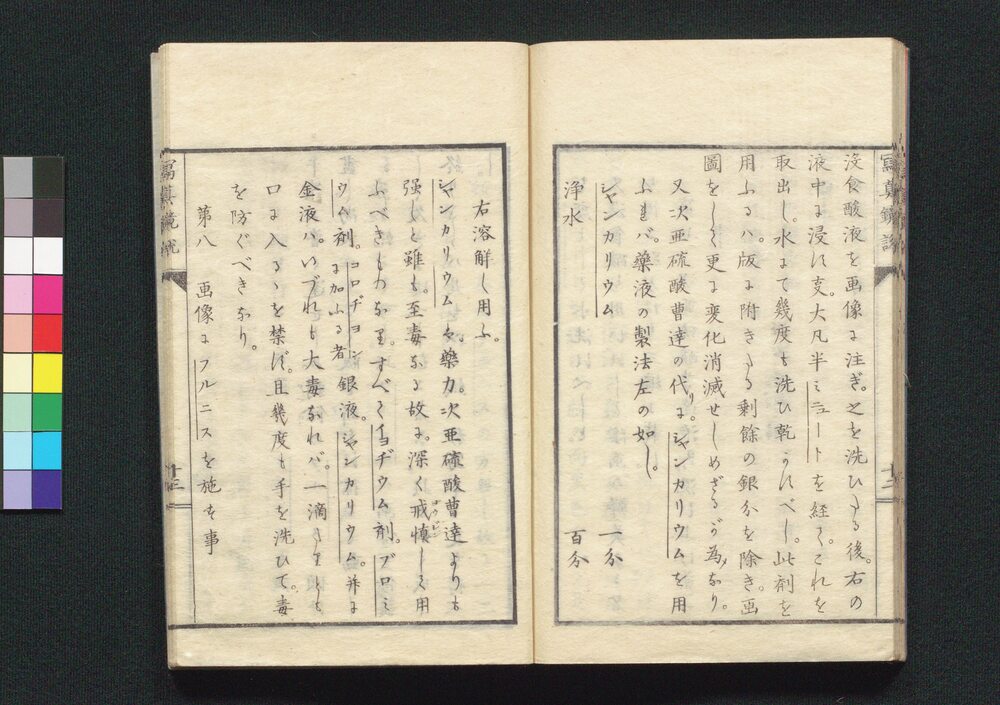 没食酸液を画像に注ぎ。之を洗ひたる後。右の
液中に浸す支。大凡半ミニュートを経て。これを
取出し。水にて幾度も洗ひ乾かすべし。此剤を
用ふるハ。版に附きたる剰餘の銀分を除き画
圖をして更に変化消滅せしめざるが為なり。
又次亜硫酸曹達の代りに。シャンカリウムを用
ふれバ。藥液の製法左の如し。
シャンカリウム 一分
浄水 百分
寫真鏡説
十二
右溶解し用ふ。
シャンカリウムハ。藥力。次亜硫酸曹達よりも
強しと雖も。至毒なる故に。深く戒慎して用
ふべきものなり。すべてイヲヂウム剤。ブロミ
ウム剤。コロヂヨンに加ふる者銀液。シャンカリウム。并に
金液ハ。いづれも大毒なれバ。一滴たりとも
口に入るゝを禁ず。且幾度も手を洗ひて。毒
を防ぐべきなり。
第八 画像にフルニスを施す事
寫真鏡説
十三